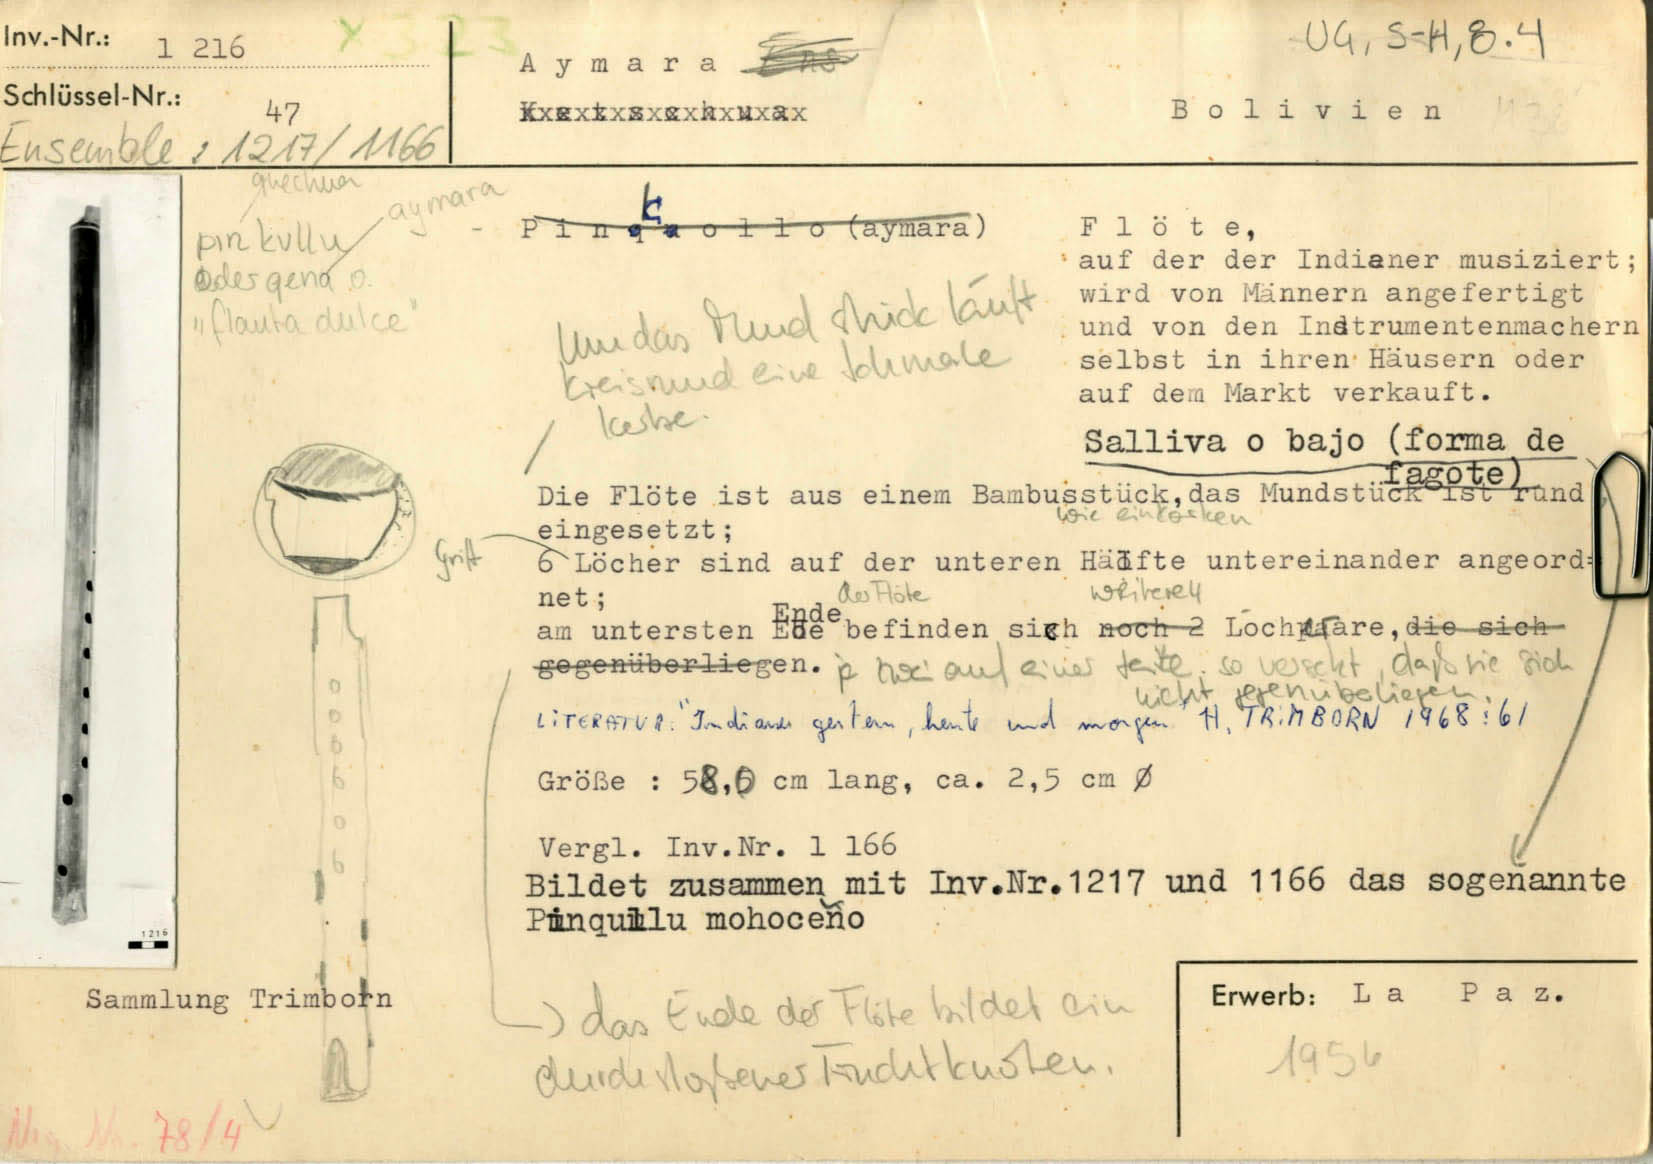 Inv.-Nr.: 1 216
X 323
Schlüssel-Nr.:
47
Ensemble : 1217/1166
Aymara
Kxextxsxcxhxuxax
UG, S-H, 8.4
Bolivien
quechua
aymara
pinkullu
oder qena o.
"flauta dulce"
- Pinquollo (aymara)
k
Flöte,
auf der der Indianer musiziert;
wird von Männern angefertigt
und von den Indtrumentenmachern
selbst in ihren Häusern oder
auf dem Markt verkauft.
Um das Mundstück läuft
kreisrund eine schmale
Kerbe.
Salliva o bajo (forma de
fagote)
Die Flöte ist aus einem Bambusstück,das Mundstück ist rund
wie einkorken
eingesetzt;
Griff
6 Löcher sind auf der unteren Hälfte untereinander angeord=
net;
der Flöte
weitere 4
Ende
am untersten Ede befinden sich noch 2 Lochpaare, die sich
gegenüberliegen. je zwei auf einer Seite, so versetzt, daß sie sich
nicht gegenüberliegen.
LITERATUR: "Indianer gestern, heute und morgen" H. TRIMBORN 1968:61
Größe : 58,6 cm lang, ca. 2,5 cm Ø
Vergl. Inv.Nr. 1 166
Bildet zusammen mit Inv.Nr.1217 und 1166 das sogenannte
Pinquillu mohoceño
1216
Sammlung Trimborn
→ das Ende der Flöte bildet ein
durchstoßener Fruchtknoten.
Erwerb: La Paz.
1956
Neg. Nr. 78/4